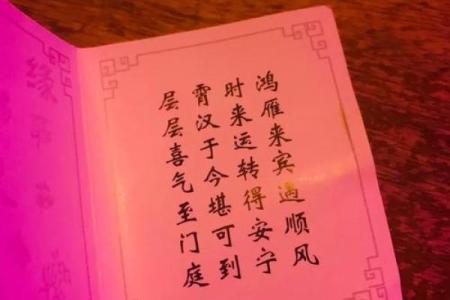 鸿雁来宾遇顺风
时来运转得安宁
霄汉于今堪可到
层层喜气至门庭